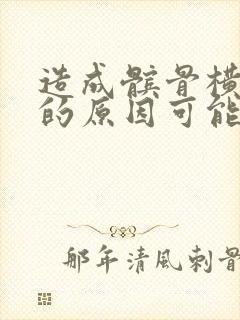 造成髌骨横
的原因可能
那年清風刺骨